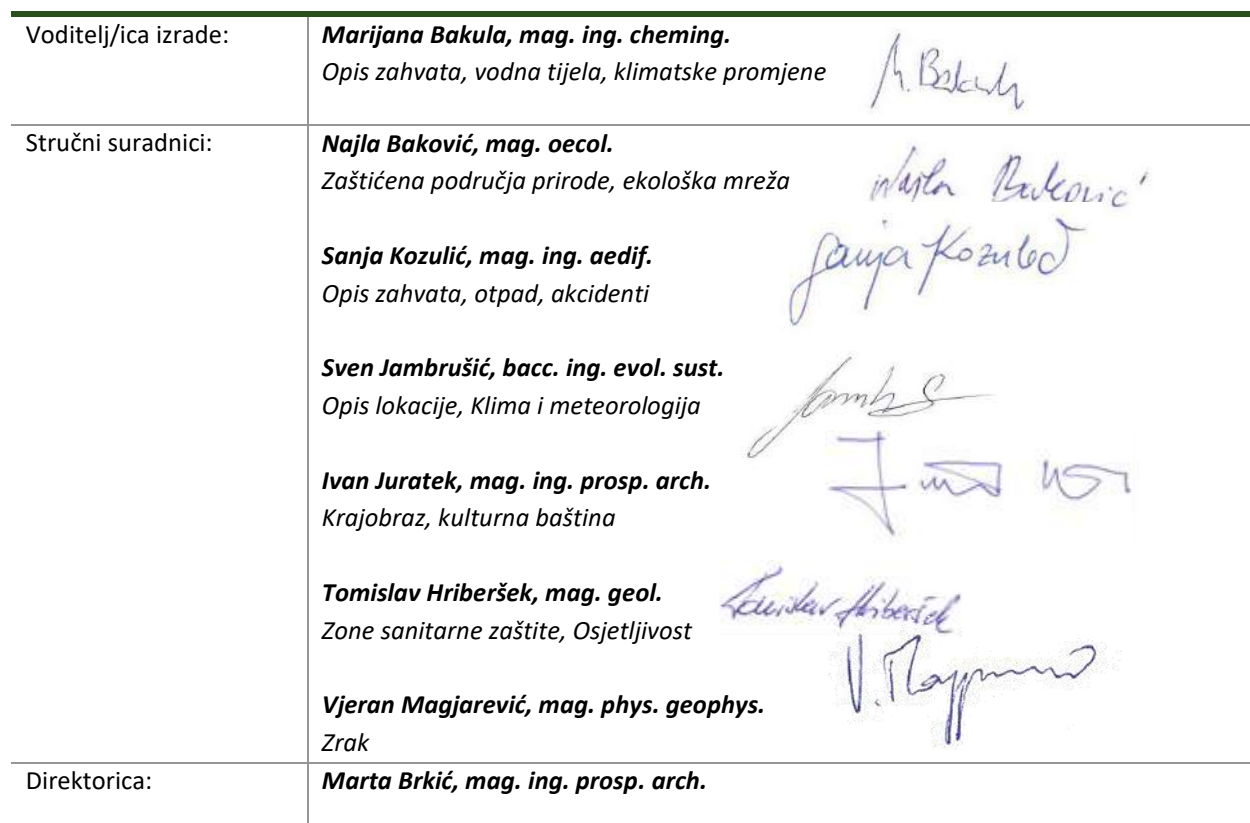 Voditelj/ica izrade:
Marijana Bakula, mag. ing. cheming.
Opis zahvata, vodna tijela, klimatske promjene
M. Bakula
Stručni suradnici:
Najla Baković, mag. oecol.
Zaštićena područja prirode, ekološka mreža
Najla Baković
Sanja Kozulić, mag. ing. aedif.
Opis zahvata, otpad, akcidenti
Sanja Kozulić
Sven Jambrušić, bacc. ing. evol. sust.
Opis lokacije, Klima i meteorologija
Ivan Juratek, mag. ing. prosp. arch.
Krajobraz, kulturna baština
Tomislav Hriberšek, mag. geol.
Zone sanitarne zaštite, Osjetljivost
Tomislav Hriberšek
Vjeran Magjarević, mag. phys. geophys.
Zrak
Direktorica:
Marta Brkić, mag. ing. prosp. arch.